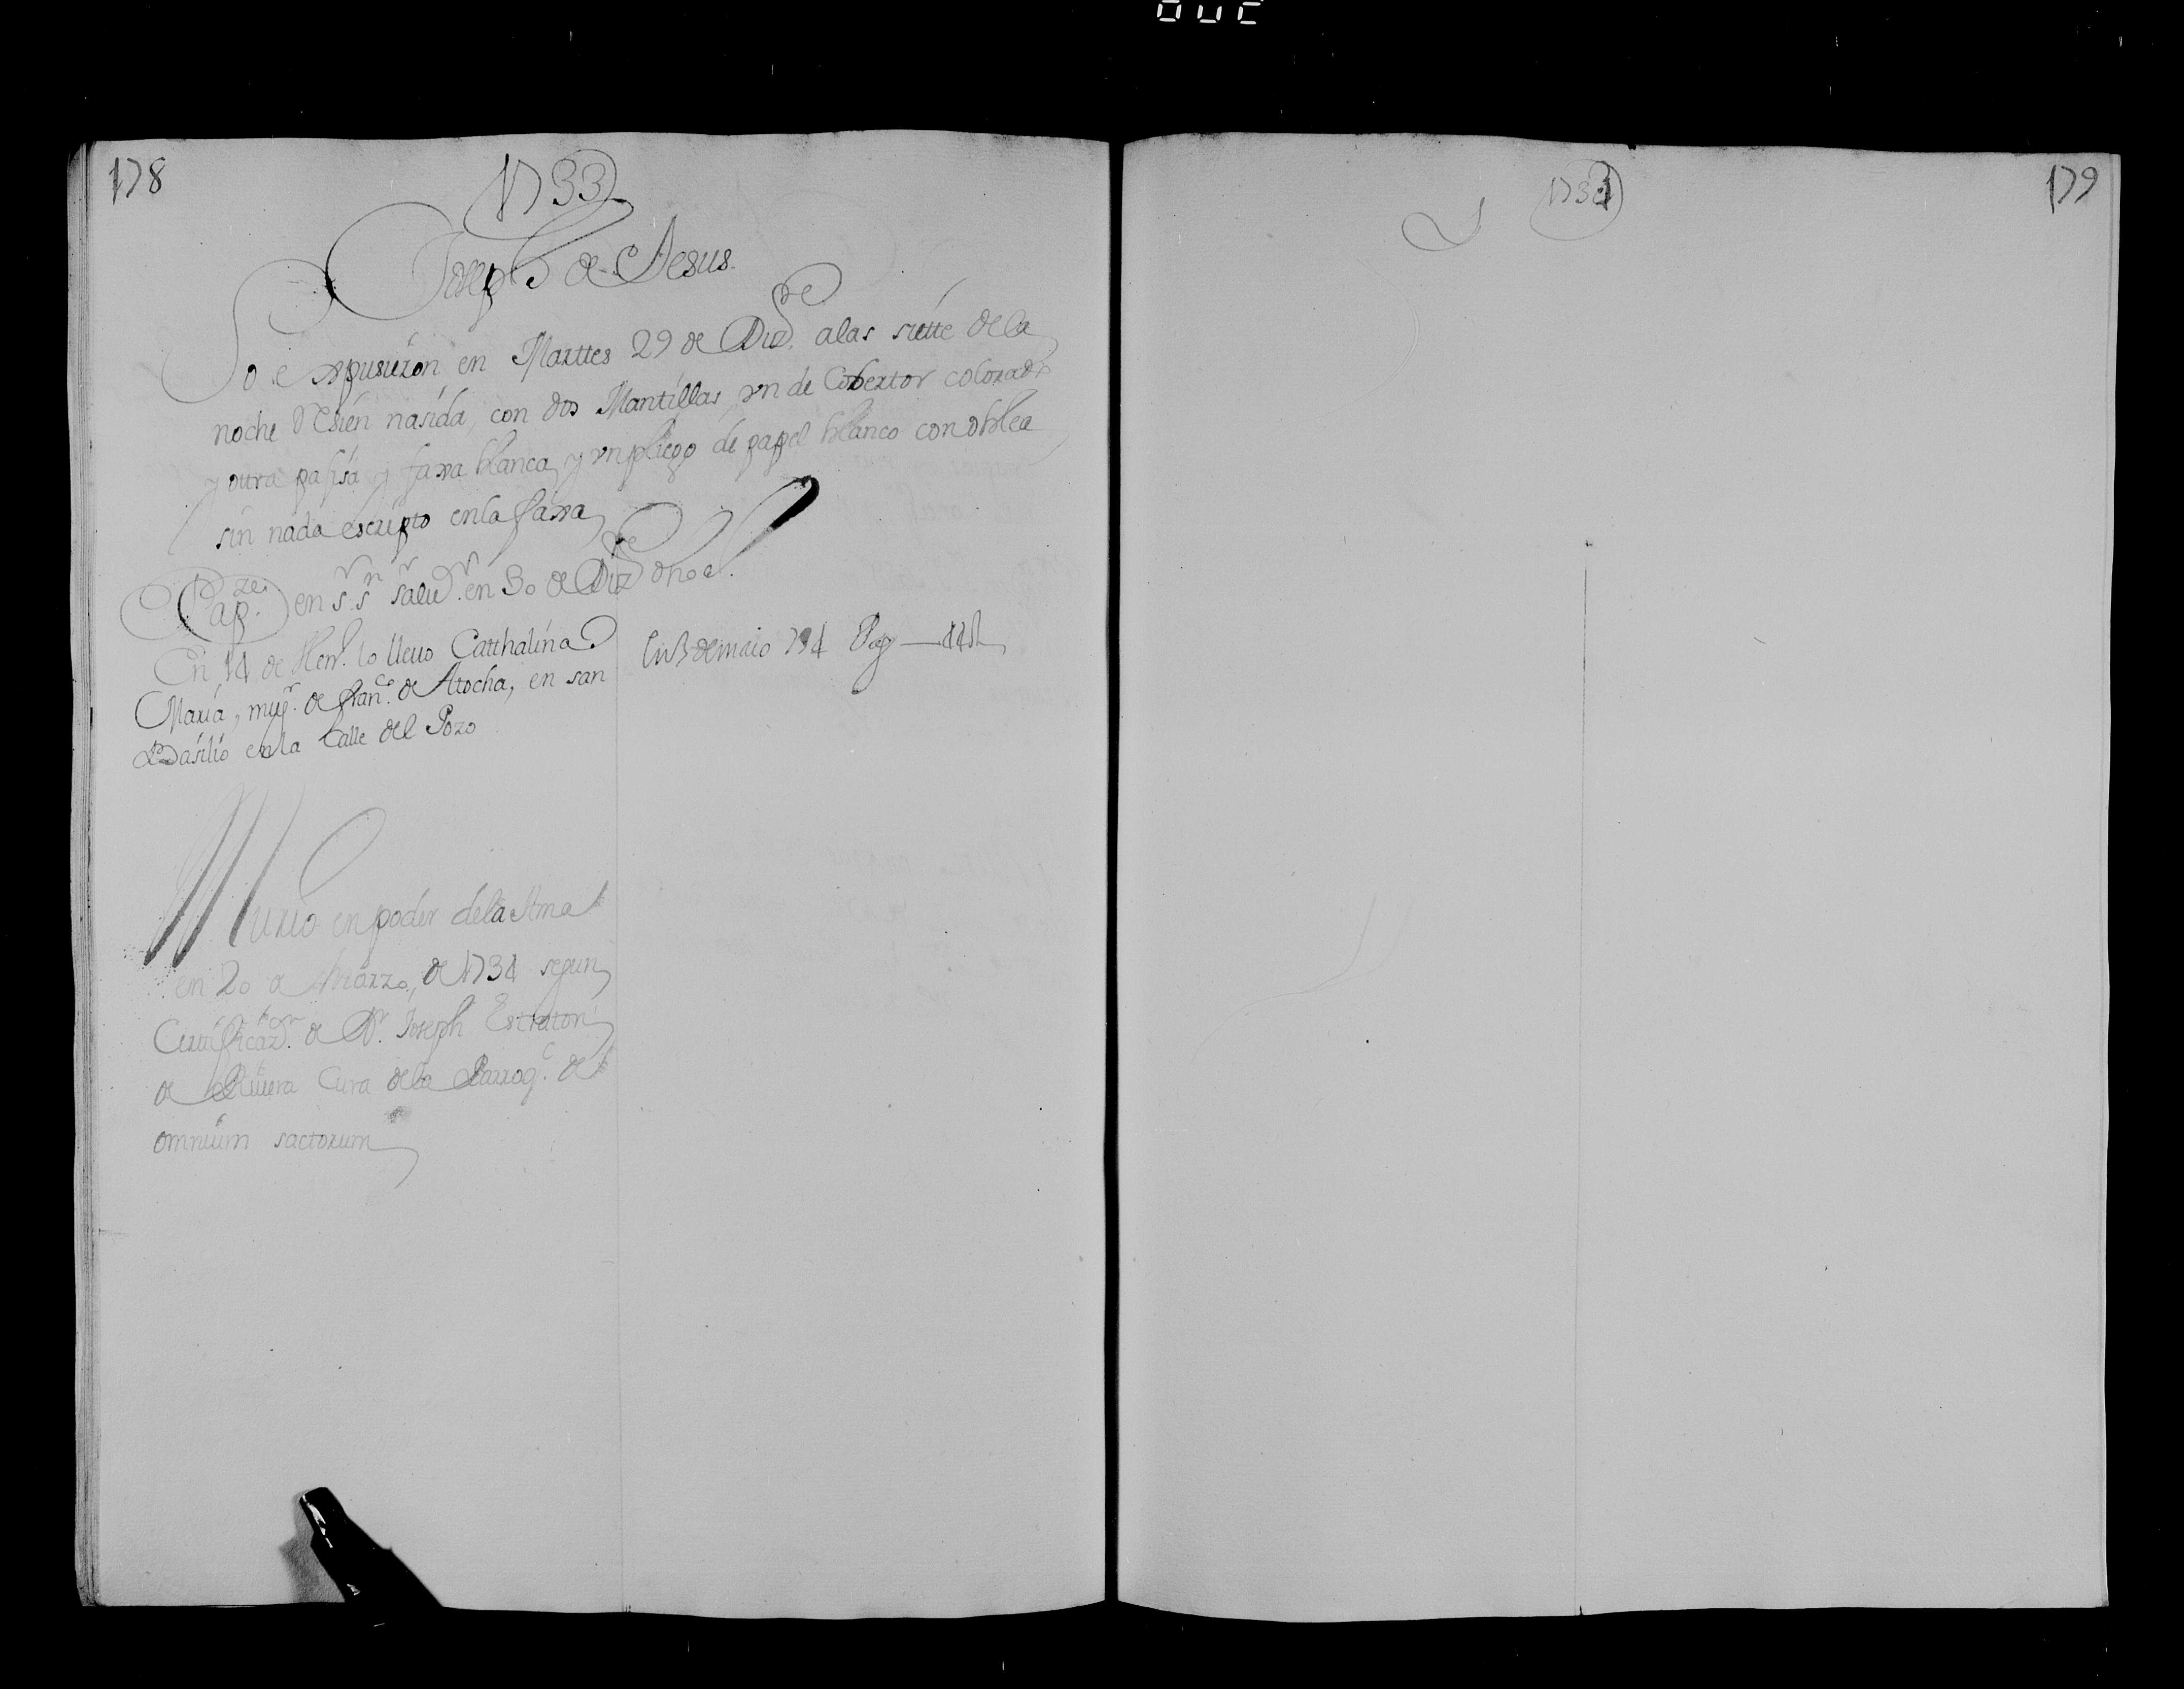 178
1733
Joseph de Jesus.
Lo expusieron en Marttes 29 de Dizre. a las siette de la
noche Resien nasida, con dos Mantillas, vn de Cobertor colorado
y outra paJisa y faxa blanca, y vn pliego de papel blanco con oblea
sin nada escripto en la faxa
Bapze. en Sr. Sn. Salur. en 30 de Dizre dho a.
En 14 de Henº. lo lleuo Catthalina
Maria, mugr. de Franco. de Atocha, en san
Basilio en la Calle del Pozo
En 3 de maio 734 Pag 44 R
Murio en poder dela Ama
en 20 de Marzo, de 1734 segun
Certificazon. de Dn. Joseph Estraton
de Riuera Cura dela Parroqc. de
omnium sactorum
1734
179